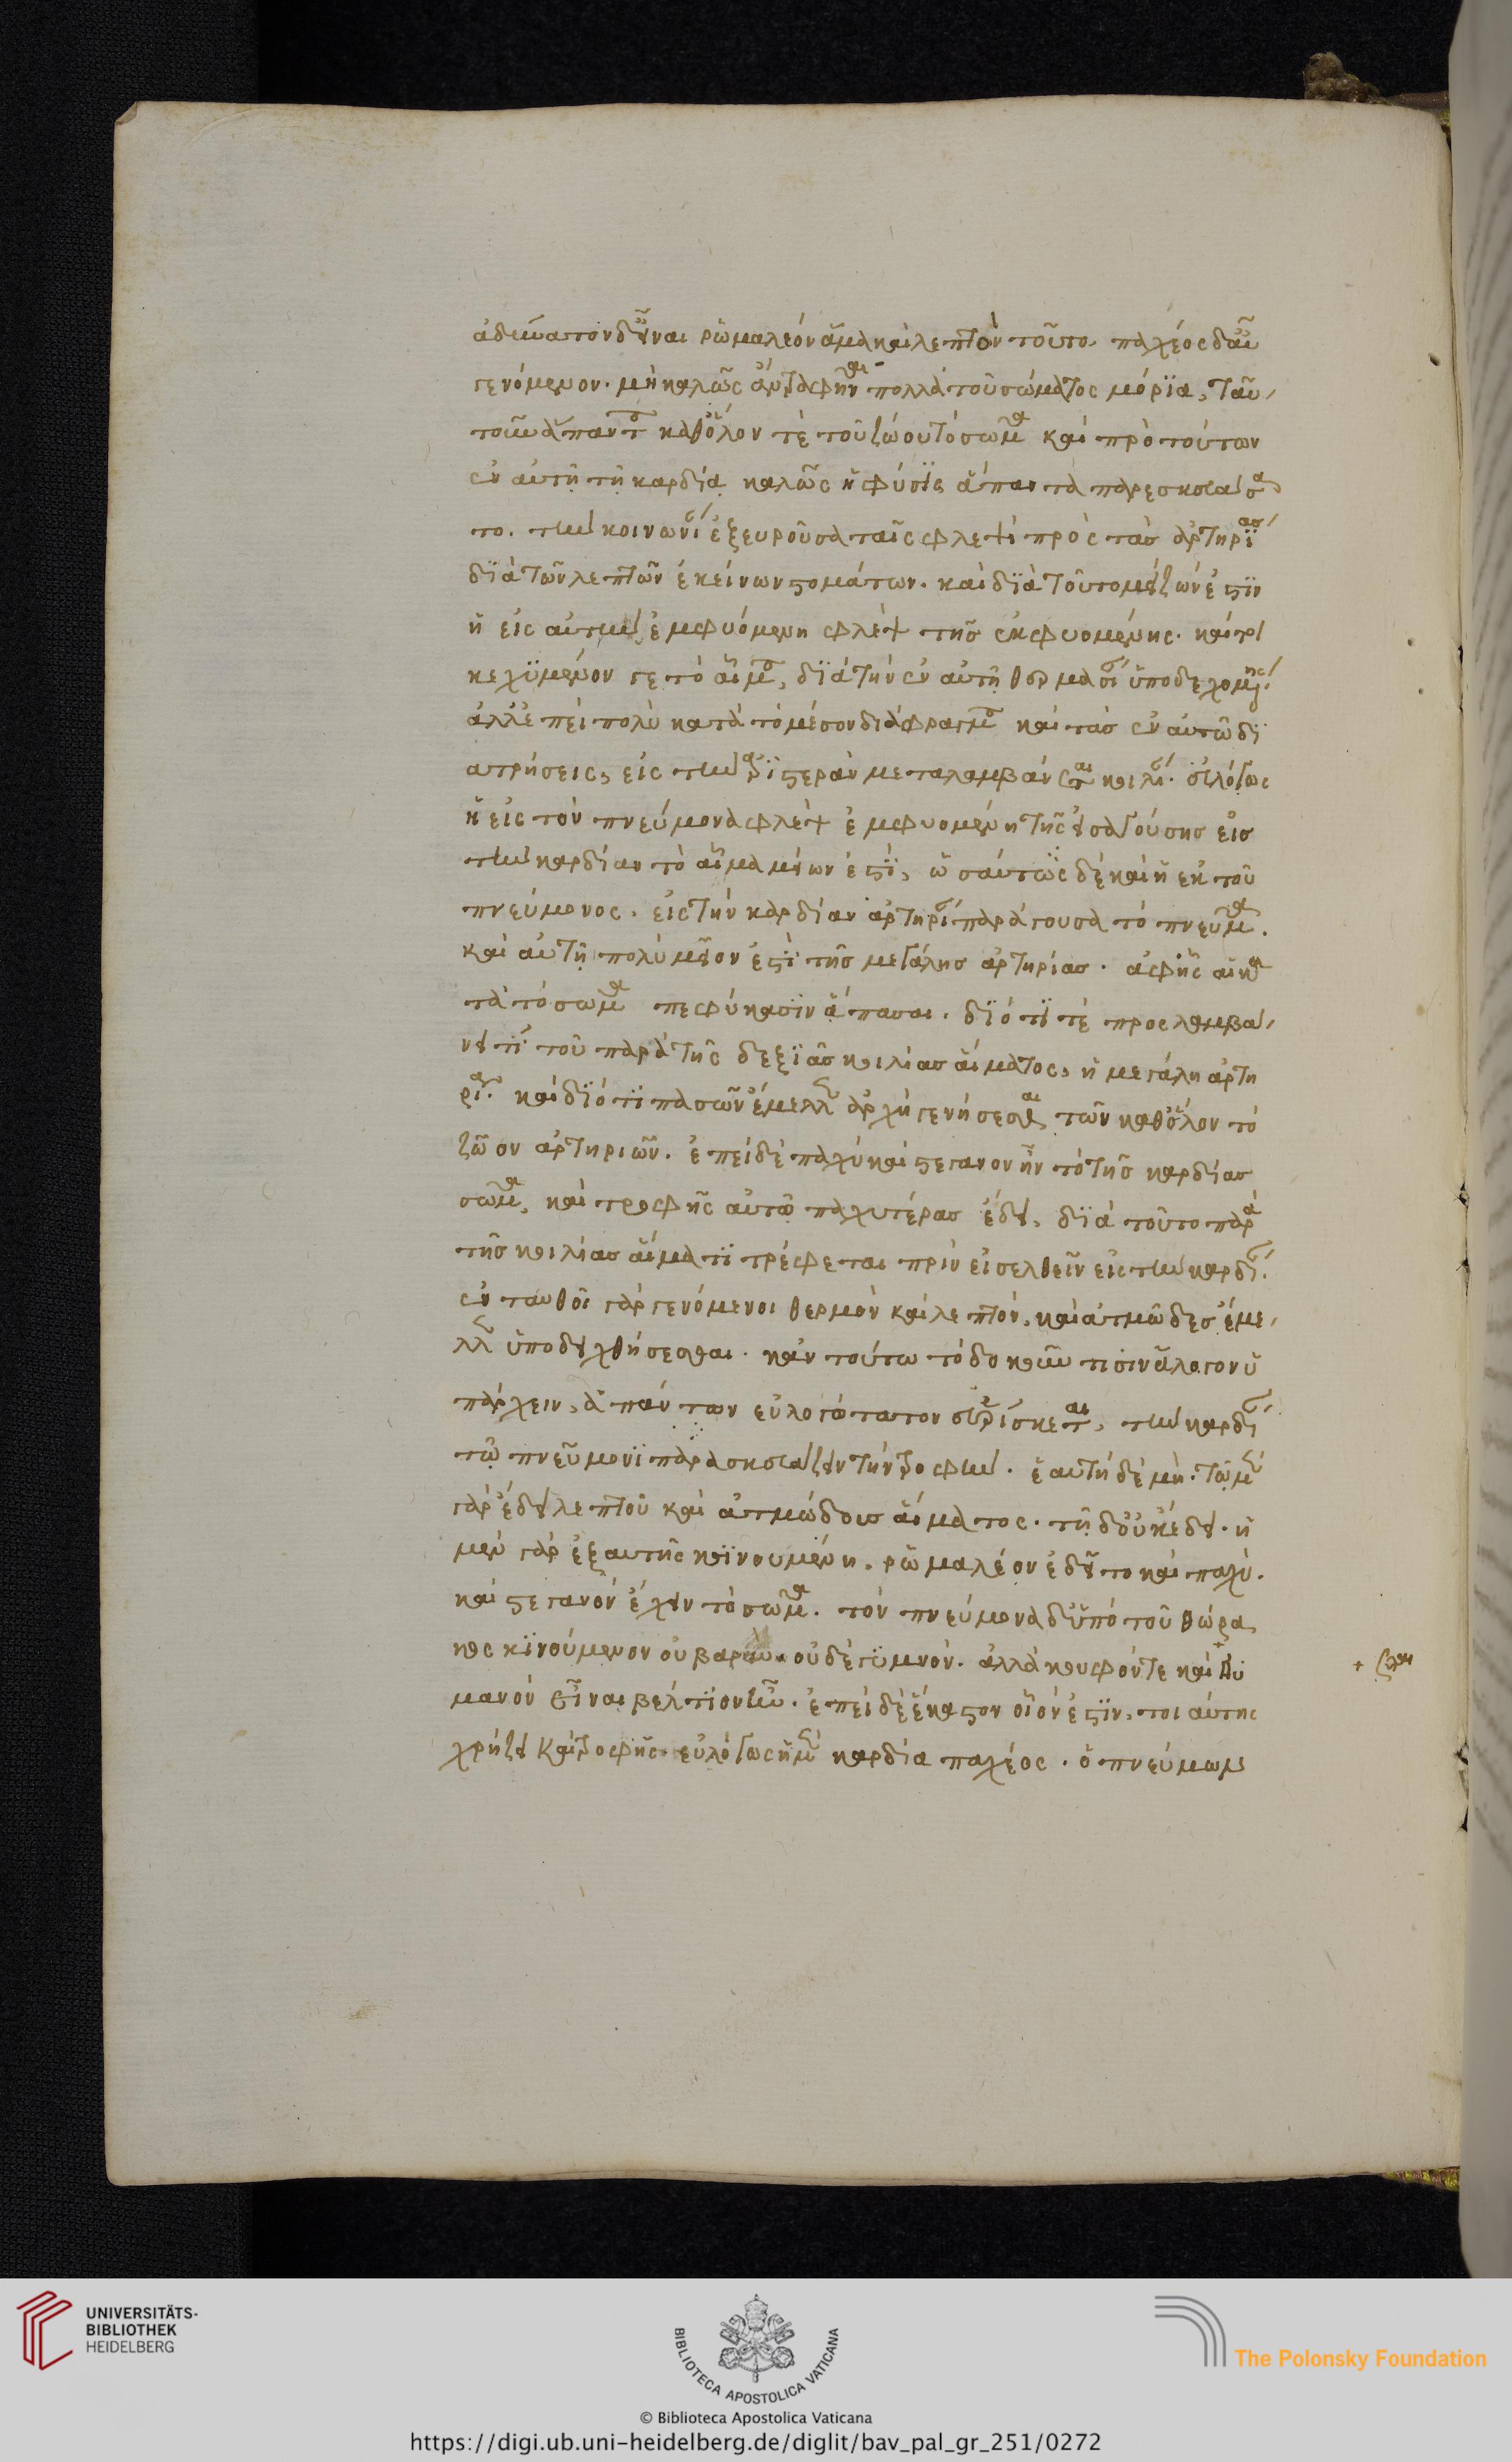 ἀδύνατον δ' εἶναι ῥωμαλέον ἅμα καὶ λεπτὸν τοῦτο. παχέος δ' αὖ
γενόμενον. μὴ καλῶς ἂν τραφῆναι πολλὰ τοῦ σώματος μόρια, ταῦ
τ' οὖν ἅπαντα καθ' ὅλον τὲ τοῦ ζώου τὸ σῶμα καὶ πρὸ τούτων
ἐν αὐτῇ τῇ καρδίᾳ καλῶς ἡ φύσις ἅπαντα παρεσκευάσα
το. τὴν κοινωνίαν ἐξευροῦσα ταῖς φλεψὶ πρὸς τὰς ἀρτηρίας
διὰ τῶν λεπτῶν ἐκείνων στομάτων. καὶ διὰ τοῦτο μείζων ἐστὶν
ἡ εἰς αὐτὴν ἐμφυομένη φλὲψ τῆς ἐκφυομένης. καίτοι
κεχυμένον γε τὸ αἷμα, διὰ τὴν ἐν αὐτῇ θερμασίαν ὑποδεχομένης.
ἀλλ' ἐπεὶ πολὺ κατὰ τὸ μέσον διάφραγμα καὶ τὰς ἐν αὐτῷ δι
ατρήσεις, εἰς τὴν ἀριστερὰν μεταλαμβάνεται κοιλίαν. εὐλόγως
ἡ εἰς τὸν πνεύμονα φλὲψ ἐμφυομένη τῆς εἰσαγούσης εἰς
τὴν καρδίαν τὸ αἷμα μείων ἐστὶ, ὡσαύτως δὲ καὶ ἡ ἐκ τοῦ
πνεύμονος. εἰς τὴν καρδίαν ἀρτηρία παράγουσα τὸ πνεῦμα.
καὶ αὐτὴ πολὺ μεῖον ἐστὶ τῆς μεγάλης ἀρτηρίας. ἀφ' ἧς αἱ κα
τὰ τὸ σῶμα πεφύκασιν ἅπασαι. διότι τὲ προσλαμβά
νει τι τοῦ παρὰ τῆς δεξιᾶς κοιλίας αἵματος, ἡ μεγάλη ἀρτη
ρία. καὶ διότι πασῶν ἔμελλεν ἀρχὴ γενήσεσθαι τῶν καθ' ὅλον τὸ
ζῶον ἀρτηριῶν. ἐπεὶ δὲ παχὺ καὶ στεγανὸν ἦν τὸ τῆς καρδίας
σῶμα, καὶ τροφῆς αὐτῷ παχυτέρας ἔδει, διὰ τοῦτο παρὰ
τῆς κοιλίας αἵματι τρέφεται πρὶν εἰσελθεῖν εἰς τὴν καρδίαν.
ἐνταυθοῖ γὰρ γενόμενοι θερμὸν καὶ λεπτὸν, καὶ ἀτμῶδες ἔμε
λλεν ὑποδειχθήσεσθαι. κἂν τούτω τὸ δοκοῦν τισιν ἄλογον ὑ
πάρχειν, ἁπάντων εὐλογώτατον εὑρίσκεται, τὴν καρδίαν
τῷ πνεύμονι παρασκευάζειν τὴν τροφὴν. ἑαυτῇ δὲ μὴ. τῷ μὲν
γὰρ ἔδει λεπτοῦ καὶ ἀτμώδους αἵματος. τῇ δ' οὐκ ἔδει. ἡ
μὲν γὰρ ἐξ αὑτῆς κινουμένη. ῥωμαλέον ἐδεῖτο καὶ παχύ.
καὶ στεγανὸν ἔχειν τὸ σῶμα. τὸν πνεύμονα δ' ὑπὸ τοῦ θώρα
κος κινούμενον οὐ βαρὺν. οὐδὲ γυμνὸν. ἀλλὰ κουφόν τε καὶ
μανὸν εἶναι βέλτιον ἦν. ἐπεὶ δὲ ἕκαστον οἷόν ἐστιν, τοιαύτης
χρῄζει καὶ τροφῆς. εὐλόγως ἡ μὲν καρδία παχέος. ὁ πνεύμων
UNIVERSITÄTS-
BIBLIOTHEK
HEIDELBERG
BIBLIOTECA APOSTOLICA VATICANA
The Polonsky Foundation
© Biblioteca Apostolica Vaticana
https://digi.ub.uni-heidelberg.de/diglit/bav_pal_gr_251/0272